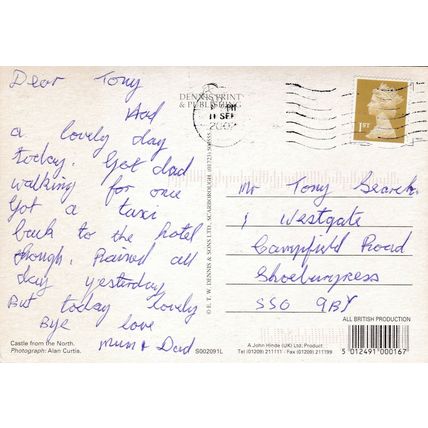 Dear Tony
Had
a lovely day
today. Got dad
walking for once
Got a taxi
back to the hotel
though. Rained all
day yesterday
But today lovely
Bye love
mum + Dad
Castle from the North.
Photograph: Alan Curtis.
S002091L
DENNIS PRINT
& PUBLISHING
© E. T. W. DENNIS & SONS LTD., SCARBOROUGH
PM
11 SEP
1ST
Mr Tony Search
1 Westgate
Campfield Road
Shoeburyness
SSO 9BY
ALL BRITISH PRODUCTION
A John Hinde (UK) Ltd. Product
Tel (01209) 211111 · Fax (01209) 211199
5 012491 000167